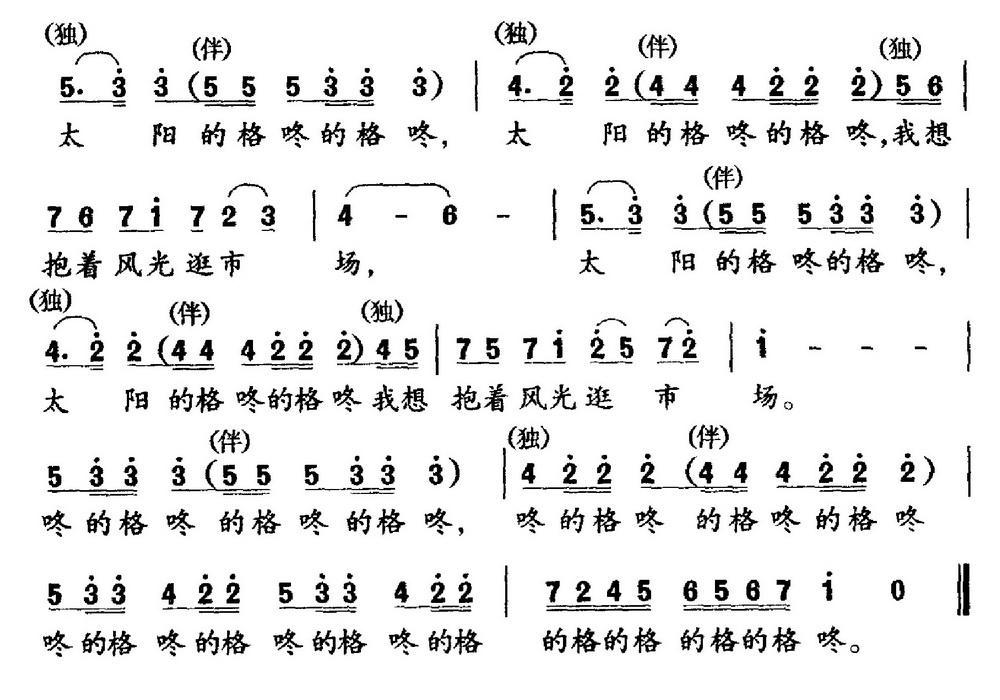 (独) (伴) (独) (伴) (独)
5. 3 3 (5 5 5 3 3 3) | 4. 2 2 (4 4 4 2 2 2) 5 6 |
太 阳 的 格 咚 的 格 咚, 太 阳 的 格 咚 的 格 咚, 我 想
(伴)
7 6 7 1 7 2 3 | 4 - 6 - | 5. 3 3 (5 5 5 3 3 3) |
抱 着 风 光 逛 市 场, 太 阳 的 格 咚 的 格 咚,
(独) (伴) (独)
4. 2 2 (4 4 4 2 2 2) 4 5 | 7 5 7 1 2 5 7 2 | 1 - - - |
太 阳 的 格 咚 的 格 咚 我 想 抱 着 风 光 逛 市 场。
(伴) (独) (伴)
5 3 3 3 (5 5 5 3 3 3) | 4 2 2 2 (4 4 4 2 2 2) |
咚 的 格 咚 的 格 咚 的 格 咚, 咚 的 格 咚 的 格 咚 的 格 咚
5 3 3 4 2 2 5 3 3 4 2 2 | 7 2 4 5 6 5 6 7 1 0 ‖
咚 的 格 咚 的 格 咚 的 格 咚 的 格 的 格 的 格 的 格 的 格 咚。